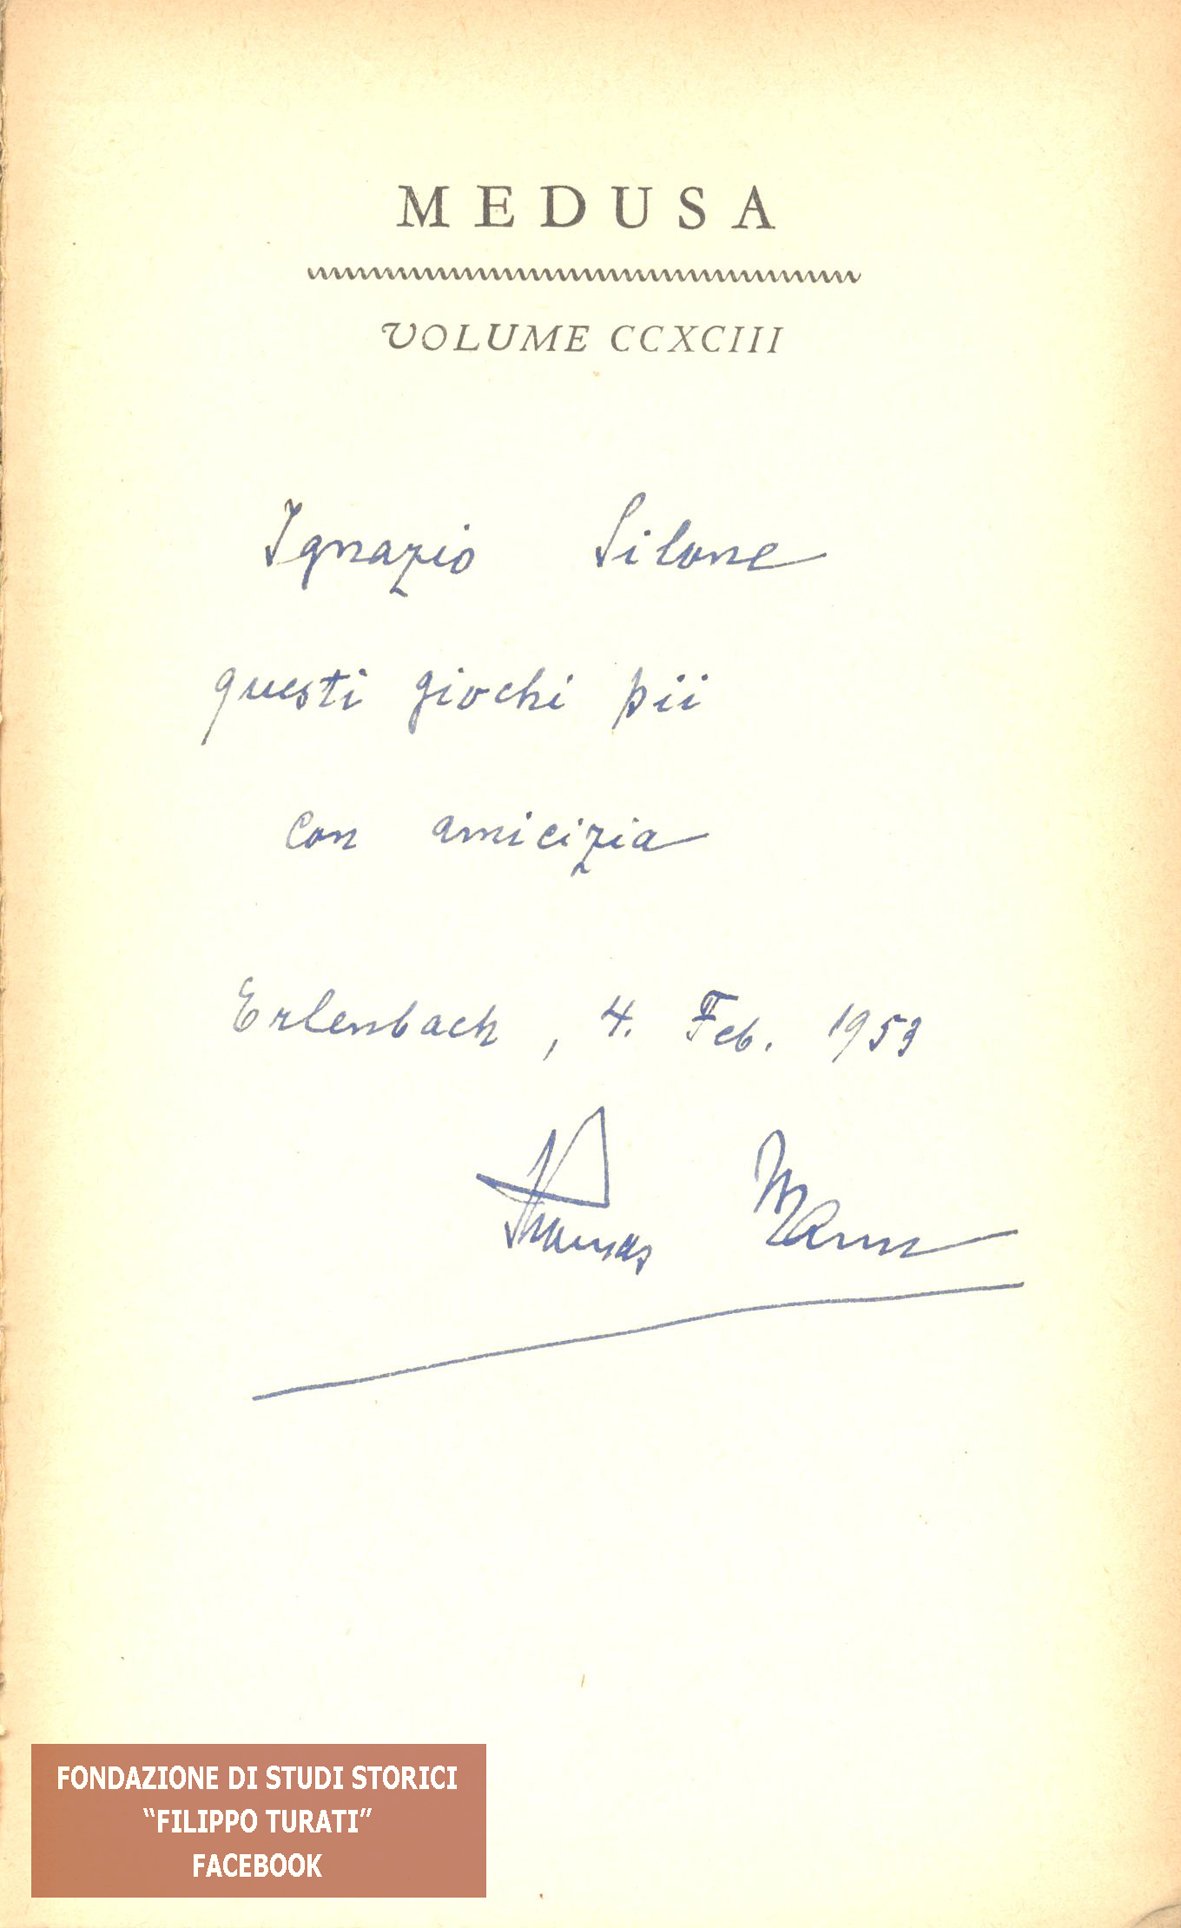 MEDUSA
VOLUME CCXCIII
Ignazio Silone
questi giochi pii
con amicizia
Erlenbach, 4. Feb. 1953
Thomas Mann
FONDAZIONE DI STUDI STORICI
“FILIPPO TURATI”
FACEBOOK